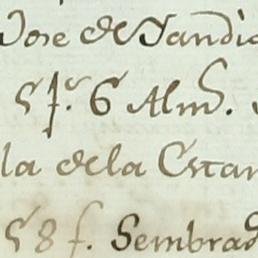 Jose de Nandia
5 f.s 6 Alm.s
la de la Estan
58 f. Sembrad